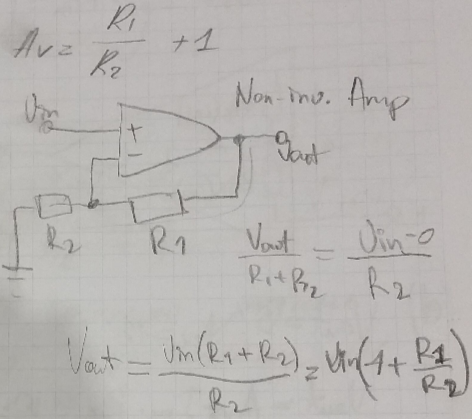 Av = R1/R2 + 1
Non-inv. Amp
Uin
+
-
Uout
R2
R1
Vout/(R1+R2) = Uin-0/R2
Vout = Uin(R1+R2)/R2 = Vin(1+R1/R2)